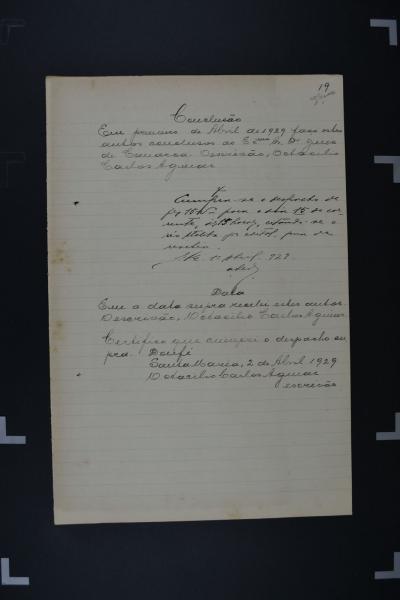 19
Conclusão
Em primeiro de Abril de 1929 faço estes
autos conclusos ao Exmo Sr. Dr. Juiz
de Comarca. O escrivão, Octacilio
Carlos Aguiar
Cumpra-se o despacho de
fls para o dia 15 do cor-
rente, ás 15 horas, citando-se o
réo por edital
1º Abril 929
Data
Em a data supra recebi estes autos.
O escrivão, Octacilio Carlos Aguiar
Certifico que cumpri o despacho su-
pra. Dou fé
Santa Maria, 2 de Abril 1929
Octacilio Carlos Aguiar
escrivão